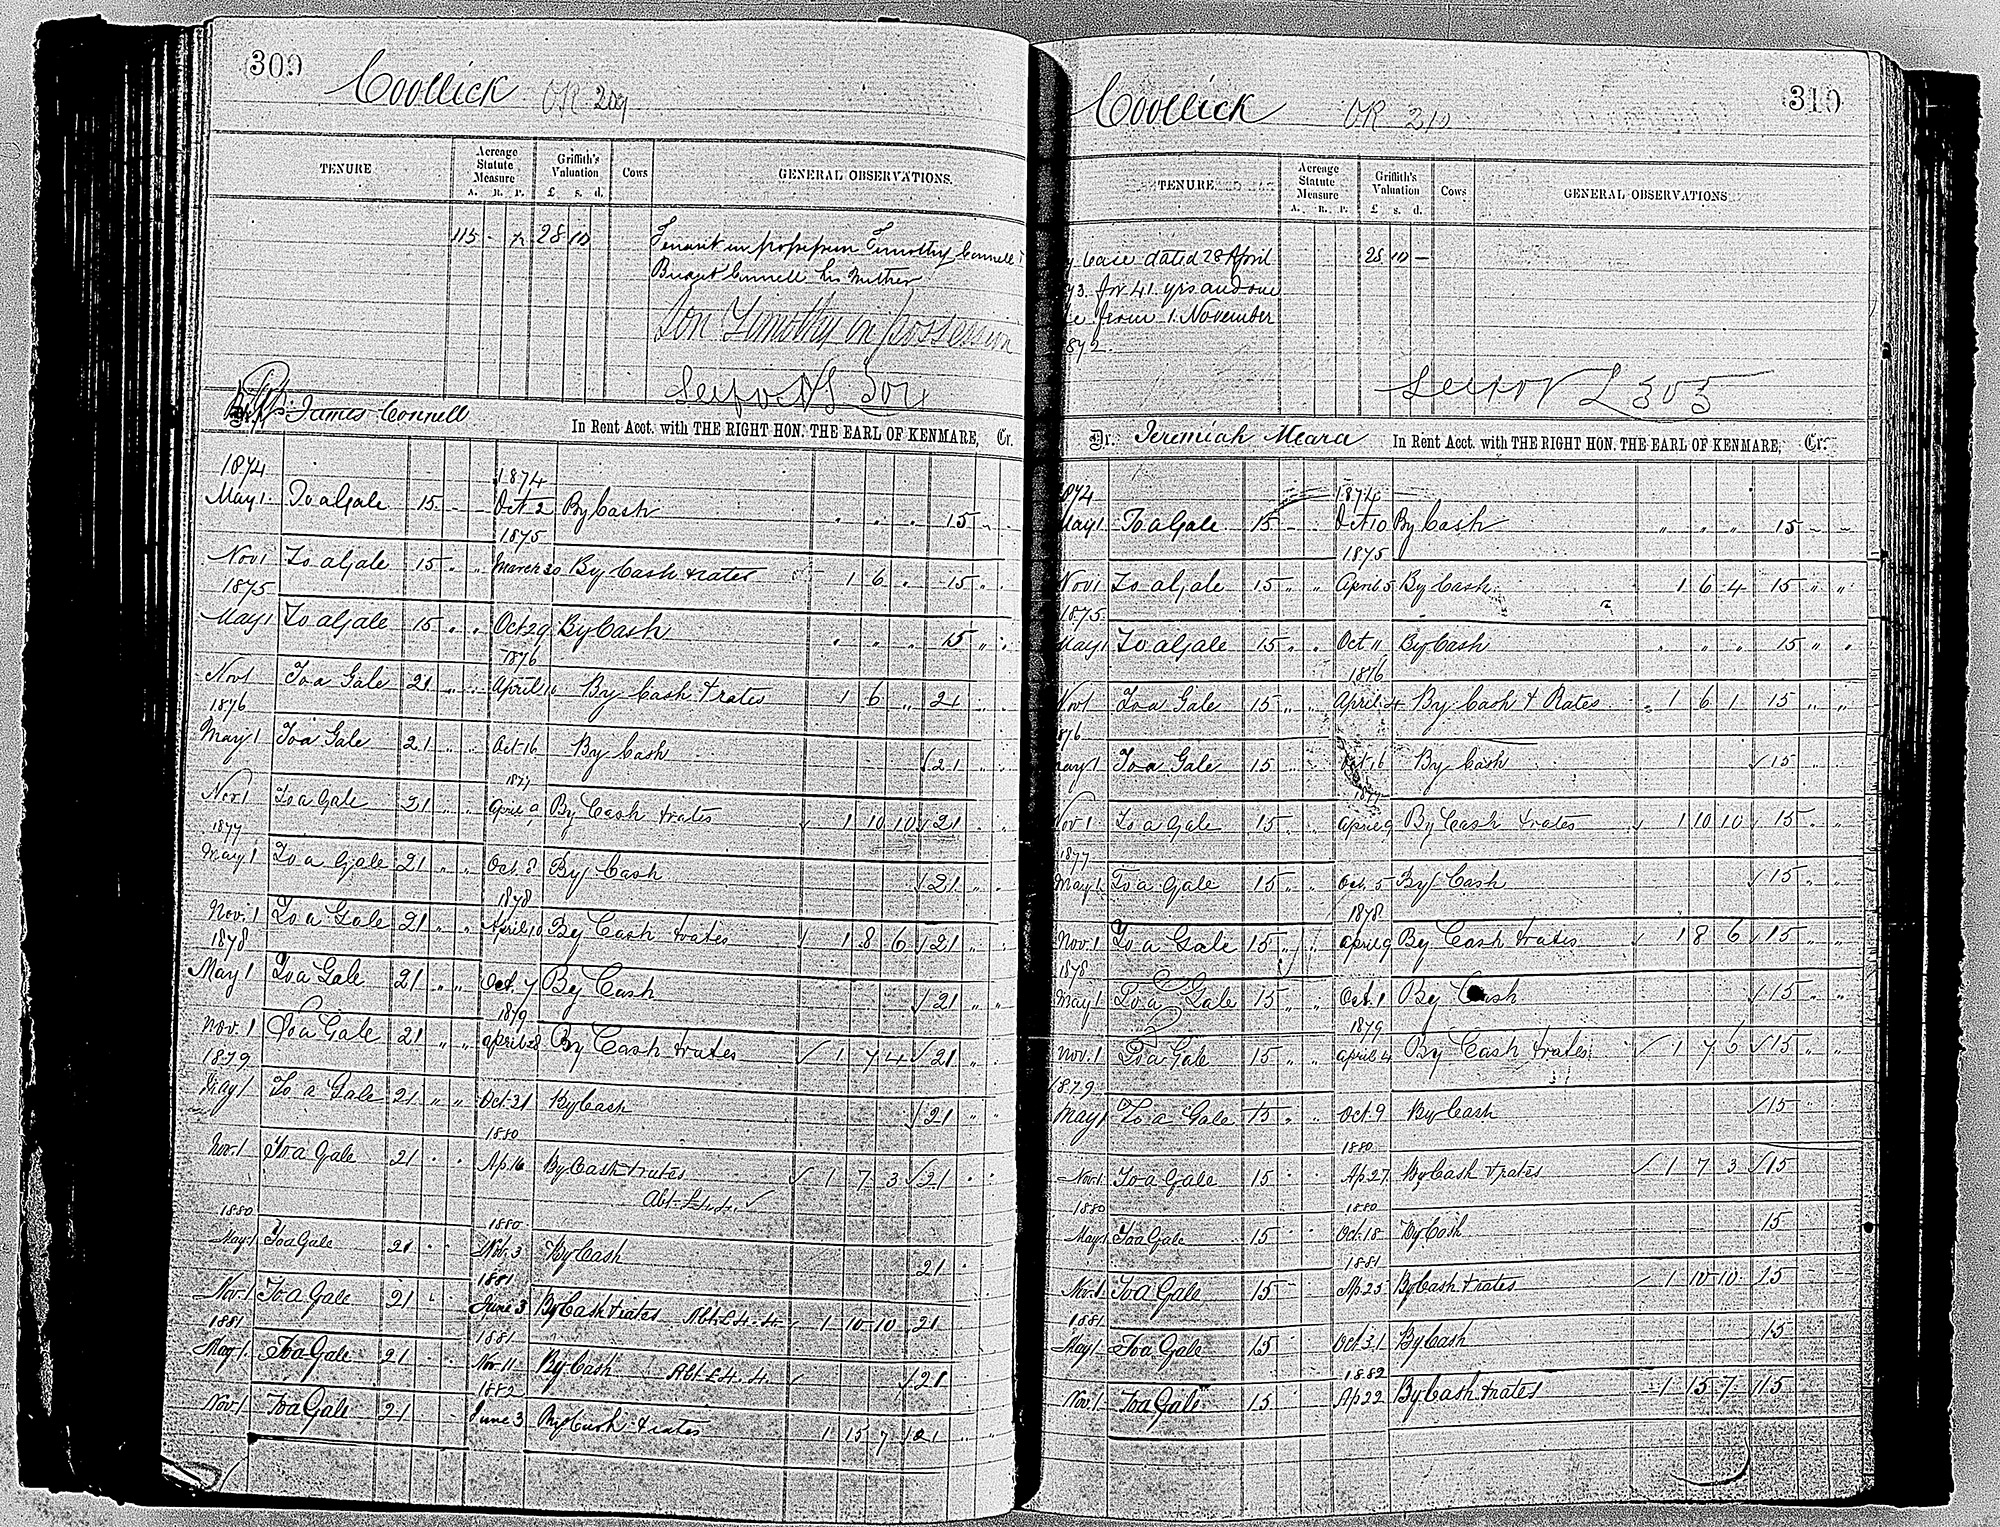 309
Coollick OR 209
TENURE
Acreage Statute Measure
A. R. P.
Griffith's Valuation
£ s. d.
Cows
GENERAL OBSERVATIONS.
115 - 28 10
Tenant in possession Timothy Connell &
Connell his Mother
Son Timothy in possession
James Connell In Rent Acct. with THE RIGHT HON. THE EARL OF KENMARE, Cr.
1874 1874
May 1 To a Gale 15 - - Oct 2 By Cash " " " 15 - -
1875
Nov 1 To a Gale 15 " " March 30 By Cash & rates 1 6 " 15 " "
1875
May 1 To a Gale 15 " " Oct 29 By Cash " " " 15 " "
1876
Nov 1 To a Gale 21 " " April 10 By Cash & rates 1 6 " 21 " "
1876
May 1 To a Gale 21 " " Oct 16 By Cash √ 21 " "
1877
Nov 1 To a Gale 21 " " April 9 By Cash & rates √ 1 10 10 √ 21 " "
1877
May 1 To a Gale 21 " " Oct. 8 By Cash √ 21 " "
1878
Nov. 1 To a Gale 21 " " April 10 By Cash & rates √ 1 8 6 √ 21 " "
1878
May 1 To a Gale 21 " " Oct. 7 By Cash √ 21 " "
1879
Nov. 1 To a Gale 21 " " April 28 By Cash & rates √ 1 7 4 √ 21 " "
1879
May 1 To a Gale 21 " " Oct. 21 By Cash √ 21 " "
1880
Nov. 1 To a Gale 21 " " Ap. 16 By Cash & rates √ 1 7 3 √ 21 " "
Abt. £4.4. √
1880 1880
May 1 To a Gale 21 " " Nov. 3 By Cash 21 "
1881
Nov. 1 To a Gale 21 " June 3 By Cash & rates Abt. £4.4.4 √ 1 10 10 21
1881 1881
May 1 To a Gale 21 " " Nov. 11 By Cash Abt. £4.4.4 √ √ 21
1882
Nov. 1 To a Gale 21 - June 3 By Cash & rates 1 15 7 √ 21 " "
310
Coollick OR 210
TENURE
Acreage Statute Measure
A. R. P.
Griffith's Valuation
£ s. d.
Cows
GENERAL OBSERVATIONS
y Lease dated 28 April 28 10 -
73. for 41 yrs and one
fe from 1. November
872.
L 305
Dr. Jeremiah Meara In Rent Acct. with THE RIGHT HON. THE EARL OF KENMARE, Cr.
1874 1874
May 1 To a Gale 15 - - Oct 10 By Cash " " " 15 - -
1875
Nov 1 To a Gale 15 " " April 5 By Cash 1 6 4 15 " "
1875
May 1 To a Gale 15 " " Oct 11 By Cash " " " 15 " "
1876
Nov 1 To a Gale 15 " " April 4 By Cash & Rates " 1 6 1 15 " "
1876
May 1 To a Gale 15 " " Oct. 16 By Cash √ 15 " "
1877
Nov 1 To a Gale 15 " " April 9 By Cash & rates √ 1 10 10 √ 15 " "
1877
May 1. To a Gale 15 " " Oct. 5 By Cash √ 15 " "
1878
Nov. 1 To a Gale 15 " " April 9 By Cash & rates √ 1 8 6 √ 15 " "
1878
May 1 To a Gale 15 " " Oct. 1 By Cash √ 15 " "
1879
Nov. 1 To a Gale 15 " " April 4 By Cash & rates √ 1 7 6 √ 15 " "
1879
May 1 To a Gale 15 " " Oct. 9 By Cash √ 15 "
1880
Nov. 1 To a Gale 15 " Ap. 27 By Cash & rates √ 1 7 3 √ 15
1880 1880
May 1 To a Gale 15 " Oct. 18 By Cash 15
1881
Nov. 1 To a Gale 15 - Ap. 25 By Cash & rates √ 1 10 10 15
1881
May 1 To a Gale 15 Oct. 31 By Cash 15
1882
Nov. 1 To a Gale 15 Ap 22 By Cash & rates 1 15 7 15